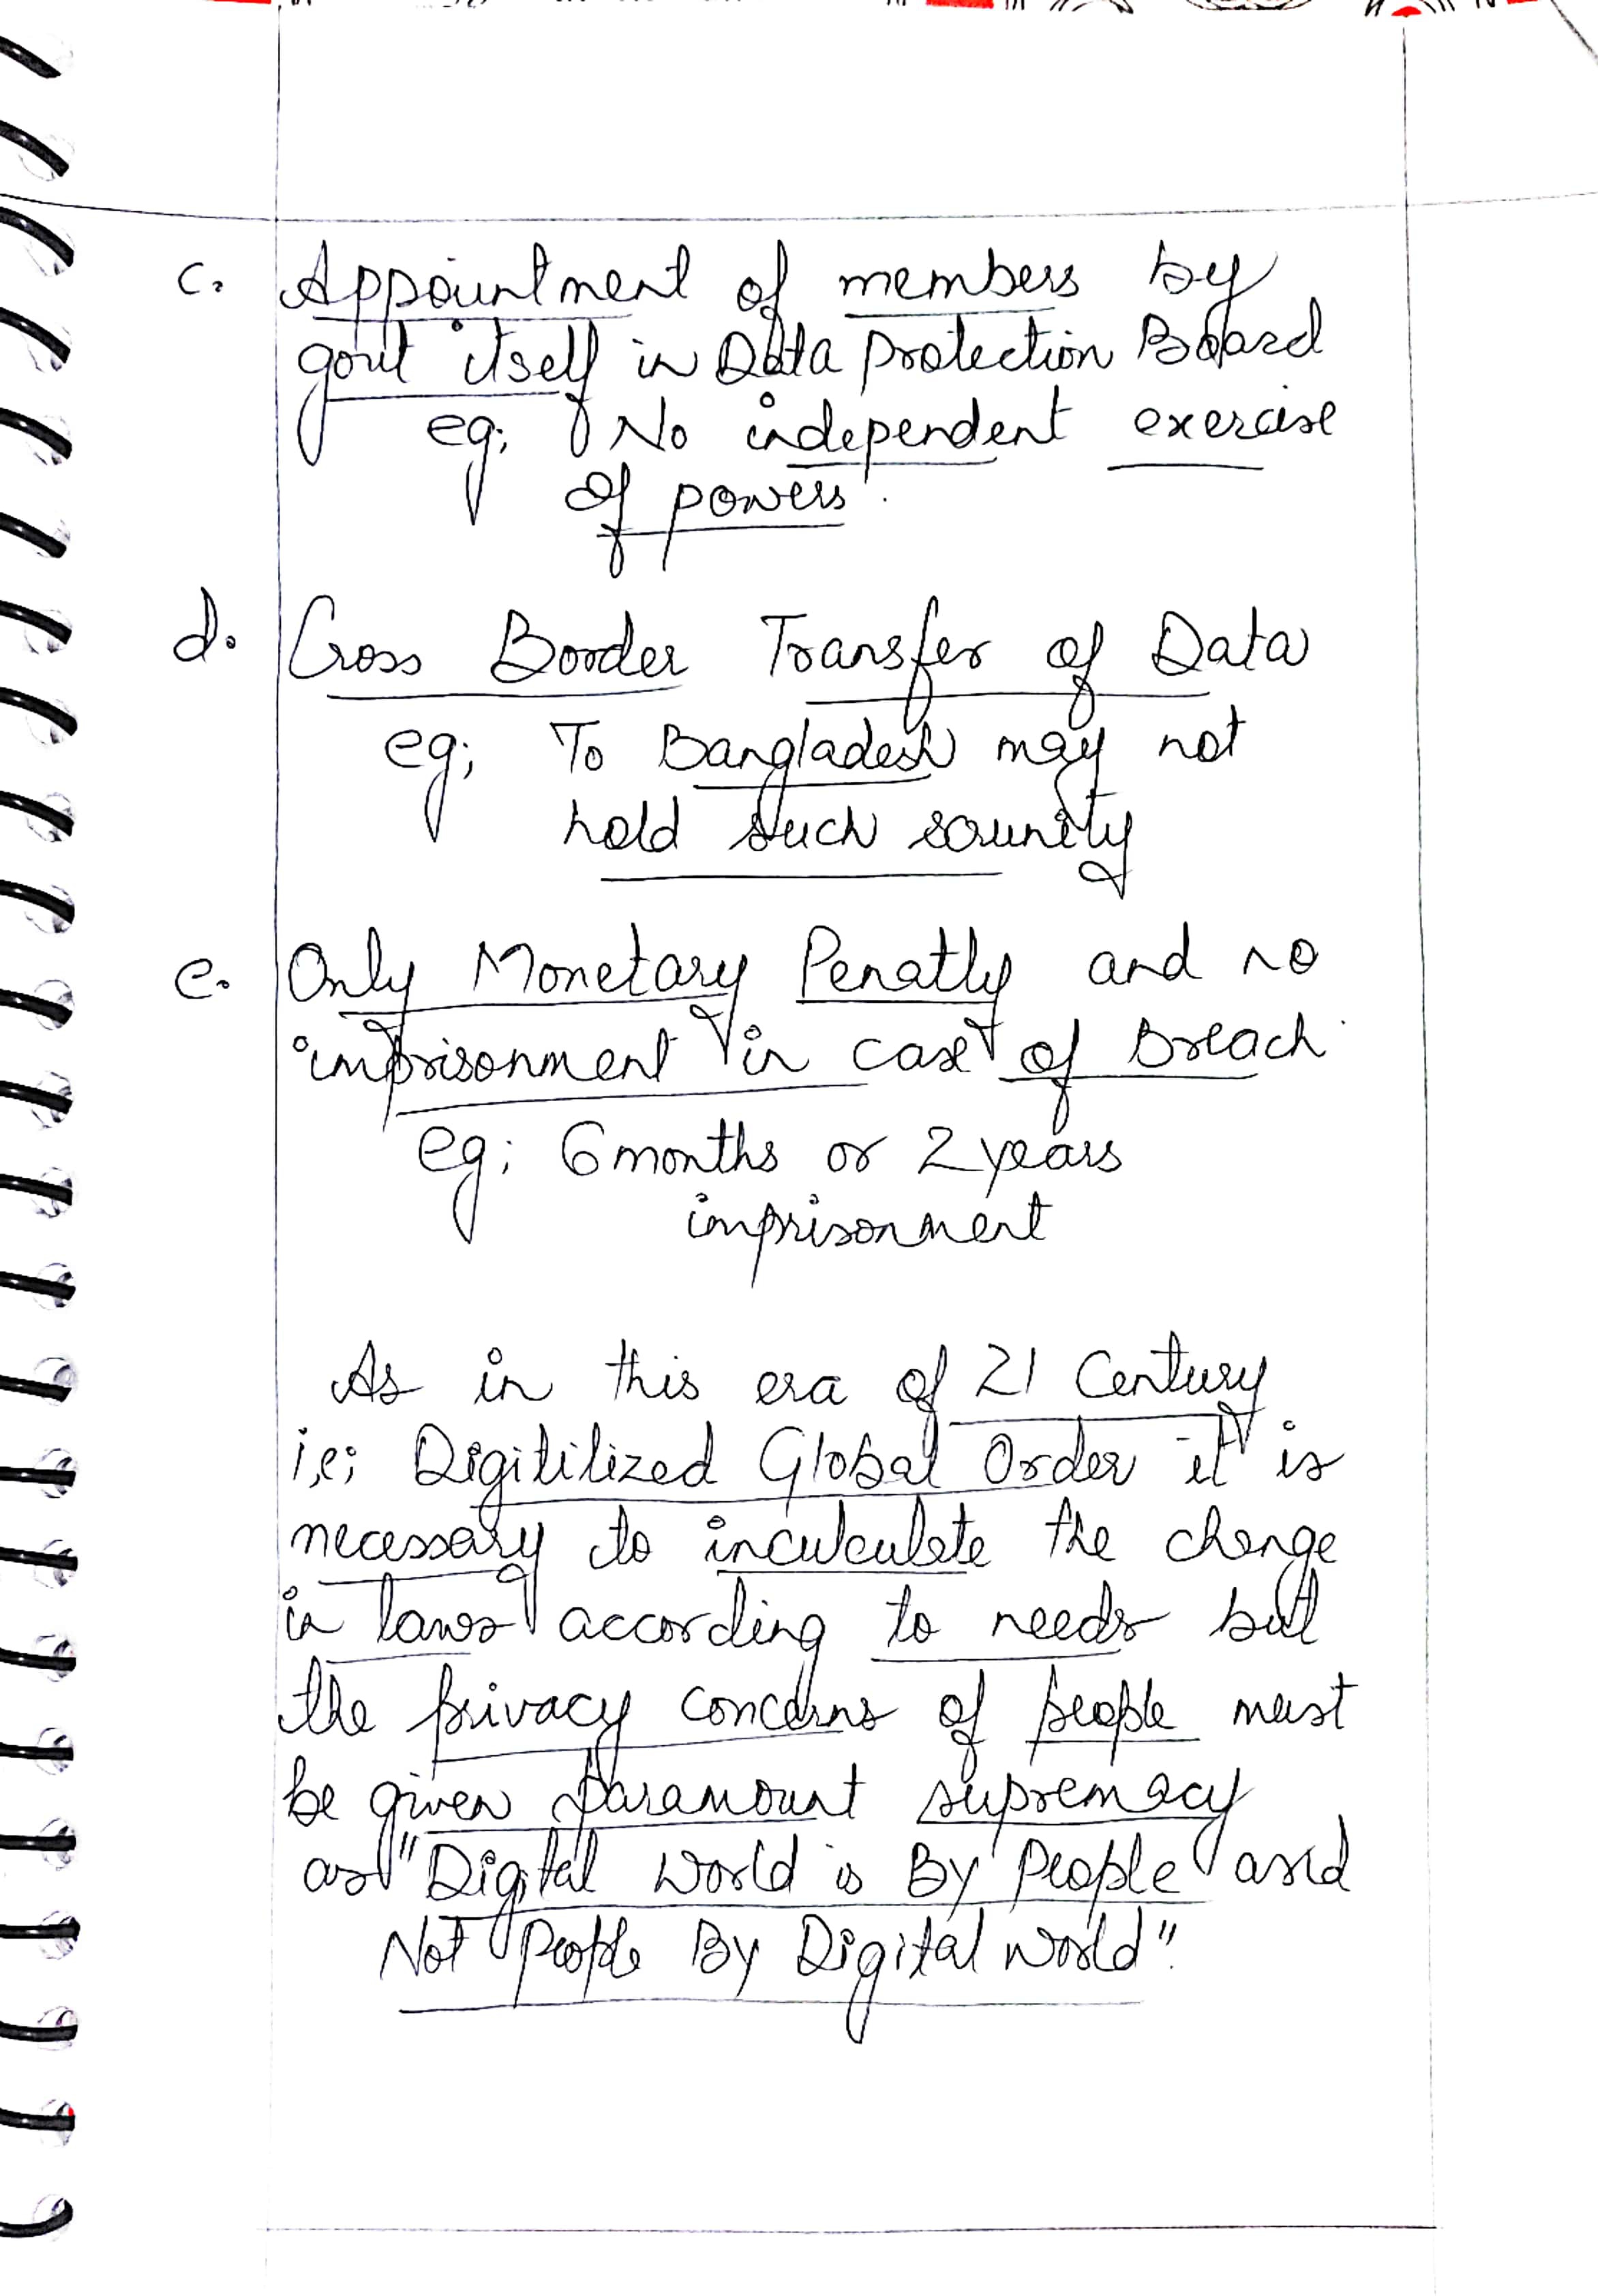 c. Appointment of members by
govt itself in Data Protection Board
eg; No independent exercise
of powers.
d. Cross Border Transfer of Data
eg; To Bangladesh may not
hold such
e. Only Monetary Penatly and no
imprisonment in case of Breach.
eg; 6 months or 2 years
imprisonment
As in this era of 21 Century
i.e; Digitilized Global Order it is
necessary to inculculate the change
in laws according to needs but
the privacy concerns of people must
be given paramount supremacy
as "Digital World is By People and
Not People By Digital World".